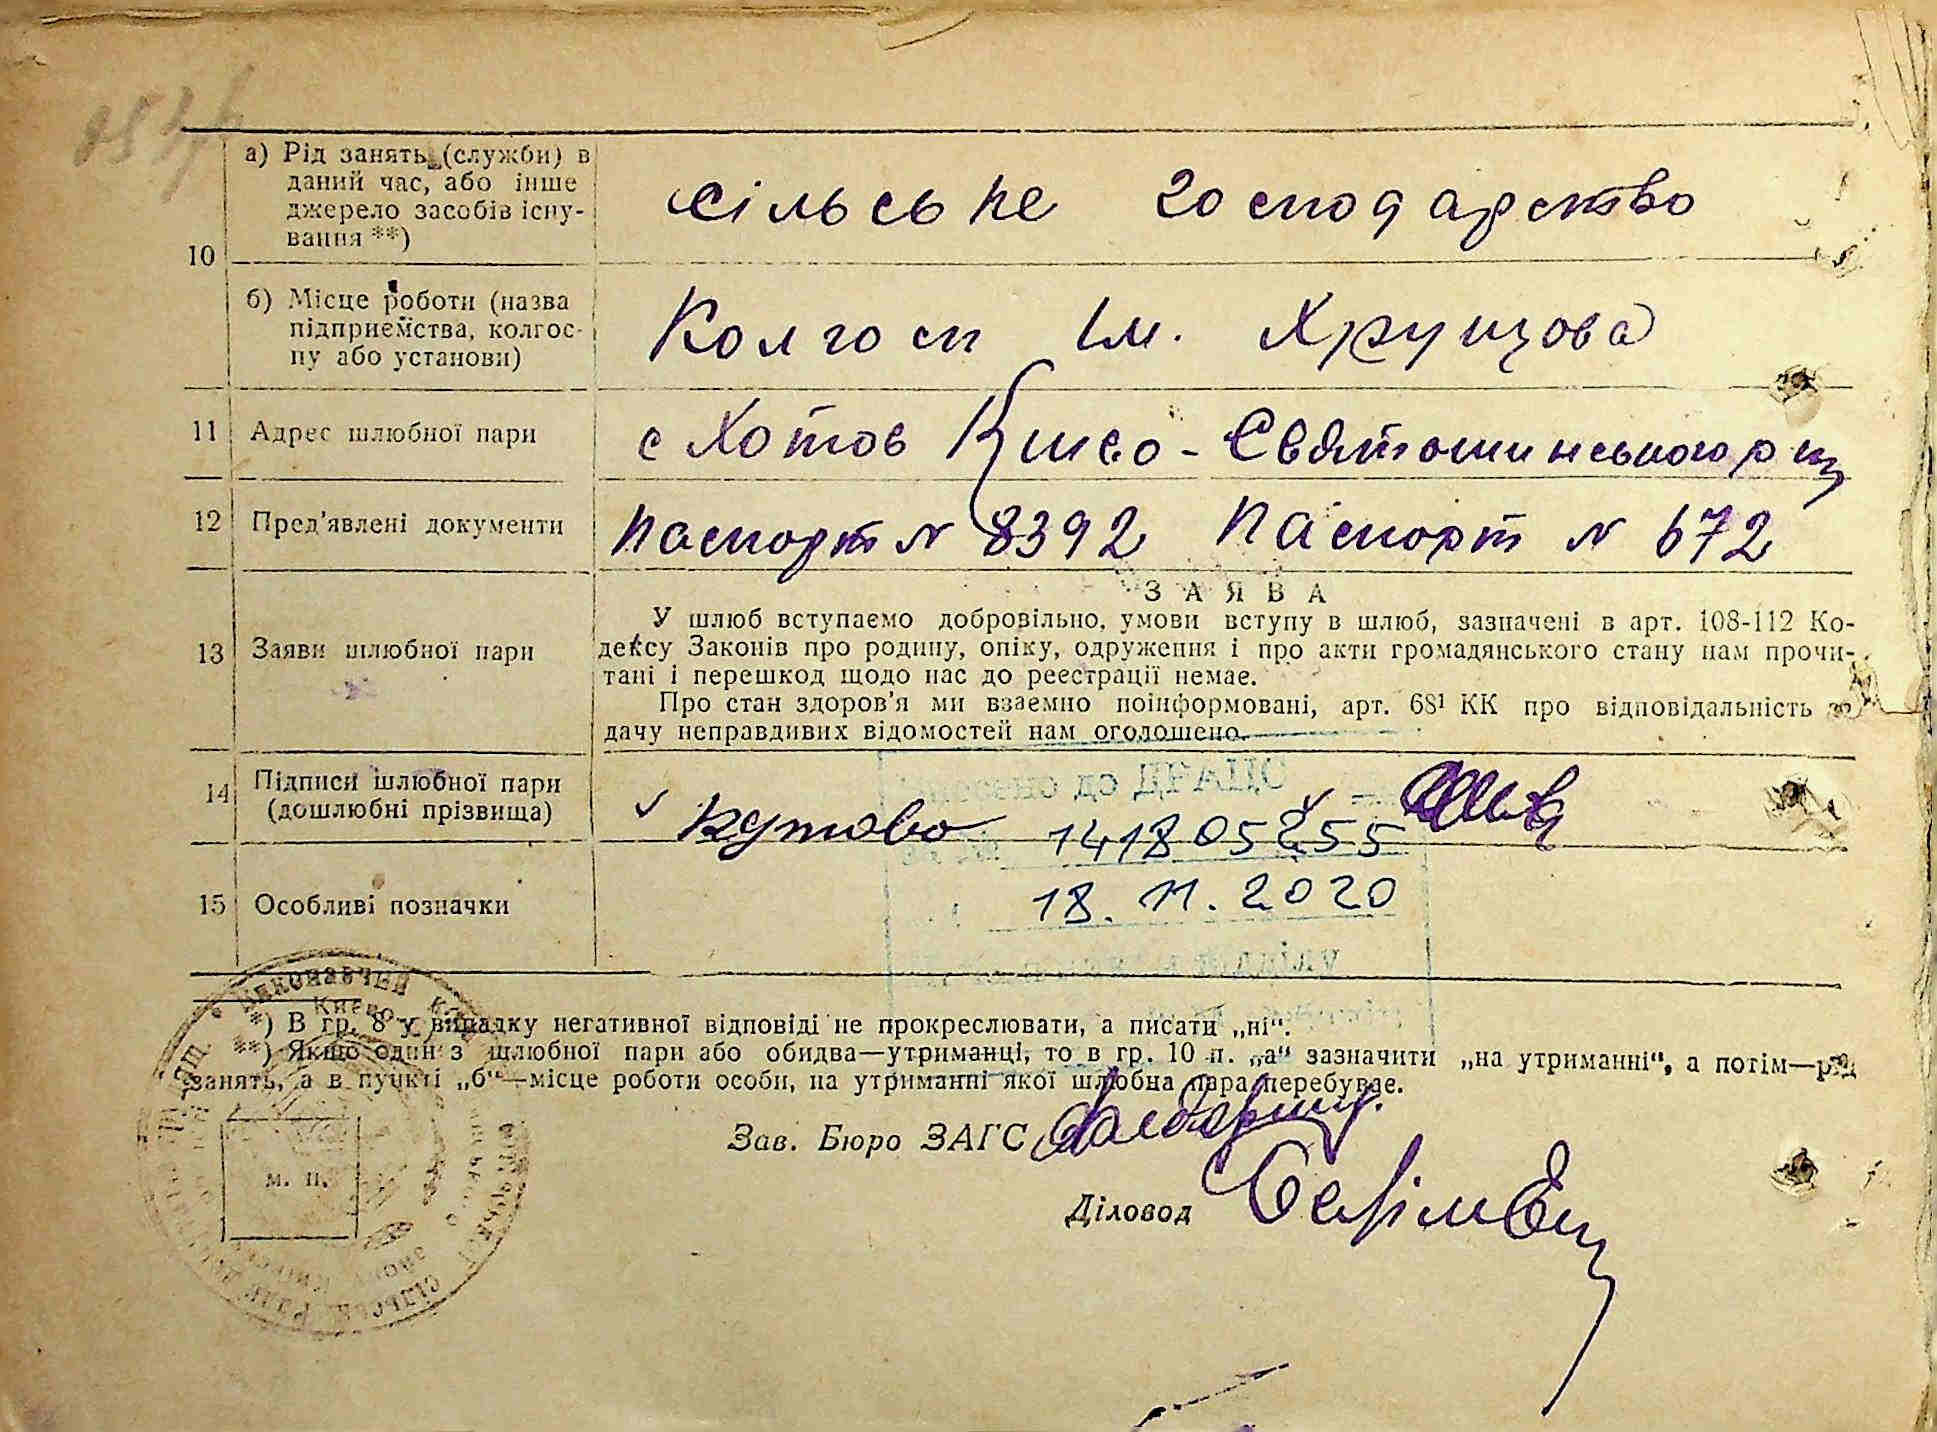 10
а) Рід занять (служби) в
даний час, або інше
джерело засобів існу-
вання **)
сільське господарство
б) Місце роботи (назва
підприємства, колгос-
пу або установи)
Колгосп ім. Хрущова
11 Адрес шлюбної пари
с Хотов Києво-Святошинського р ну
12 Пред'явлені документи
Паспорт N 8392 Паспорт N 672
13 Заяви шлюбної пари
ЗАЯВА
У шлюб вступаємо добровільно, умови вступу в шлюб, зазначені в арт. 108-112 Ко-
дексу Законів про родину, опіку, одруження і про акти громадянського стану нам прочи-
тані і перешкод щодо нас до реєстрації немає.
Про стан здоров'я ми взаємно поінформовані, арт. 68¹ КК про відповідальність за
дачу неправдивих відомостей нам оголошено.
14 Підписи шлюбної пари
(дошлюбні прізвища)
до ДРАЦС
1418 05255
15 Особливі позначки
18.11.2020
*) В гр. 8 у випадку негативної відповіді не прокреслювати, а писати „ні“.
**) Якщо один з шлюбної пари або обидва—утриманці, то в гр. 10 п. „а“ зазначити „на утриманні“, а потім—рід
занять, а в пункті „б“—місце роботи особи, на утриманні якої шлюбна пара перебуває.
Зав. Бюро ЗАГС
Діловод
м. п.